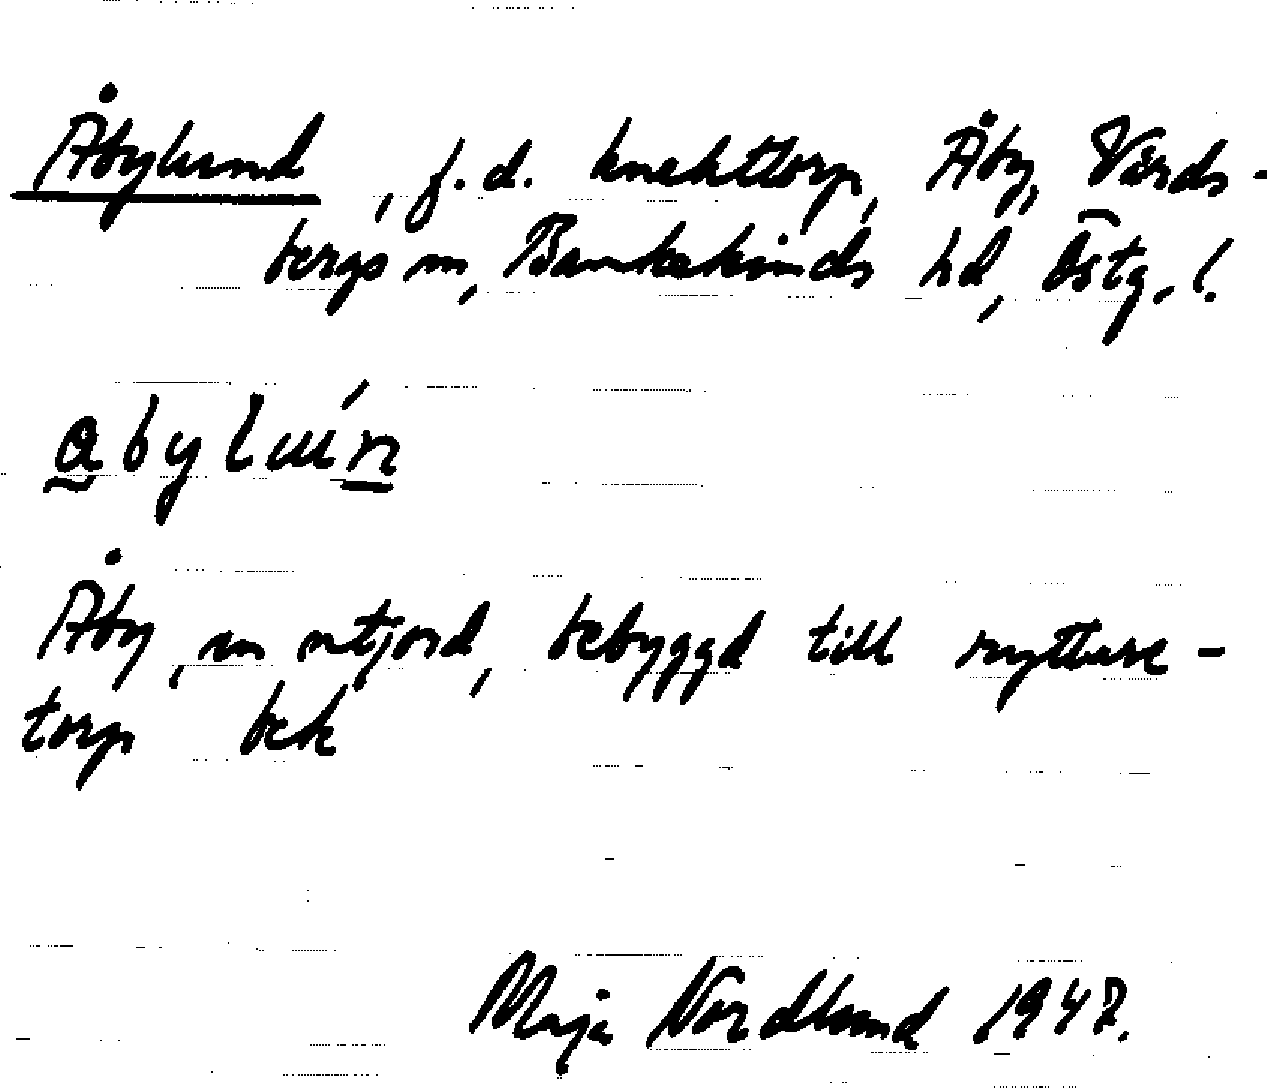 Åbylund, f.d. knekttorp, Åby, Vårds-
bergs sn, Bankekinds hd, Östg. l.
abylún
Åby, sn utjord, bebyggd till ryttare-
torp bek
Maja Nordlund 1947.